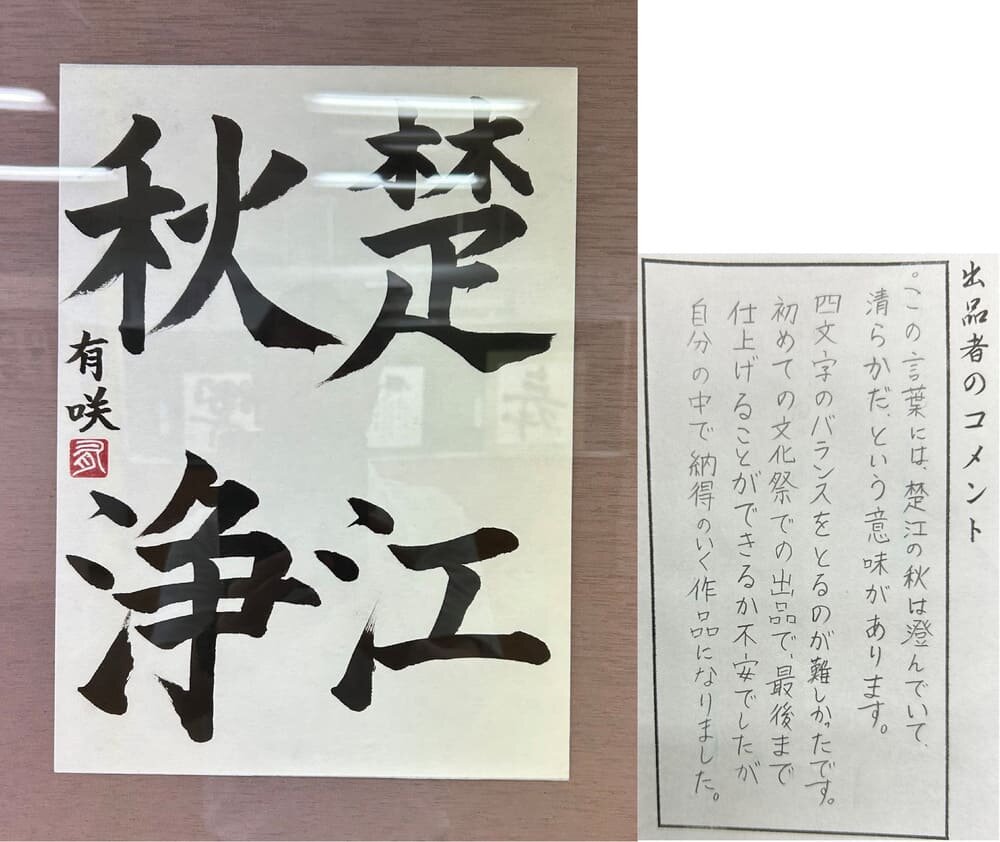 楚江
秋浄
有咲
出品者のコメント
。この言葉には、楚江の秋は澄んでいて、
清らかだ、という意味があります。
四文字のバランスをとるのが難しかったです。
初めての文化祭での出品で、最後まで
仕上げることができるか不安でしたが
自分の中で納得のいく作品になりました。